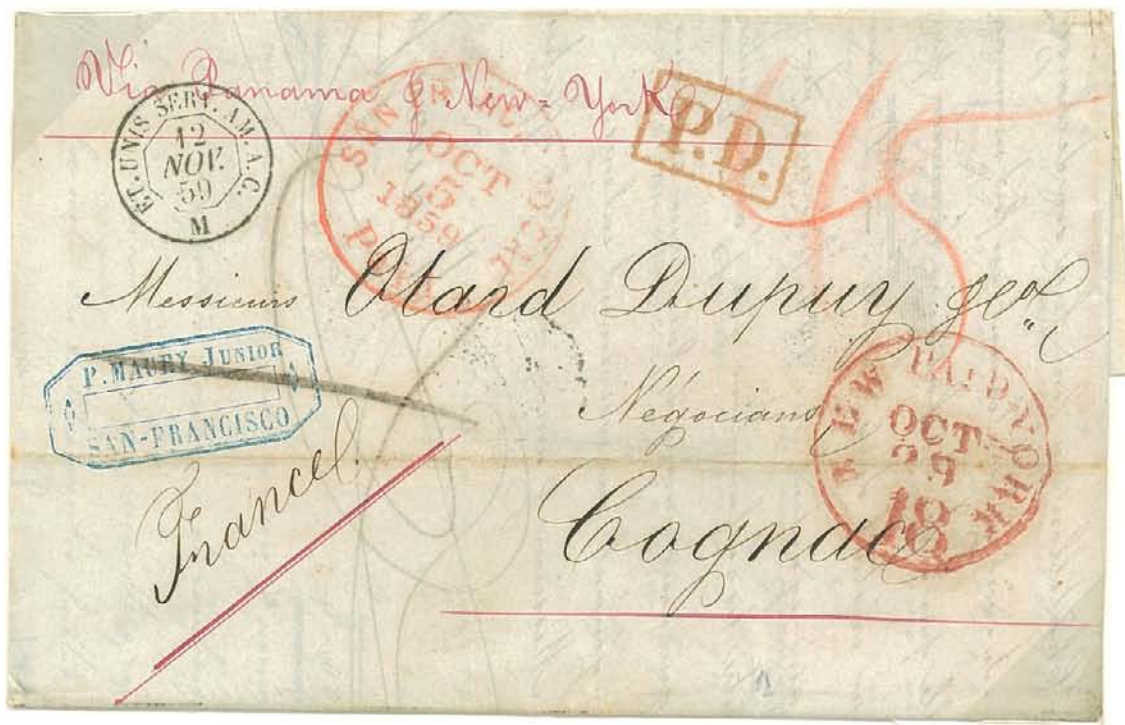 Via Panama & New=York
P.D.
15
ET. UNIS SERV. AM. A.C.
12
NOV.
59
M
SAN FRANCISCO
OCT
5
1859
PAID
Messieurs Otard Dupuy &Co.
P. MAURY JUNIOR
SAN-FRANCISCO
Négocians
NEW PAID YORK
OCT
France.
Cognac